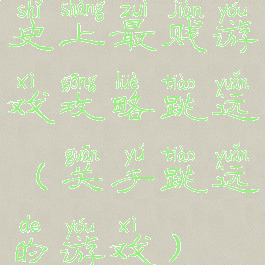 shǐ shàng zuì jiàn yóu
史上最贱游
xì gōng lüè tiào yuǎn
戏攻略跳远
guān yú tiào yuǎn
（关于跳远
de yóu xì
的游戏）